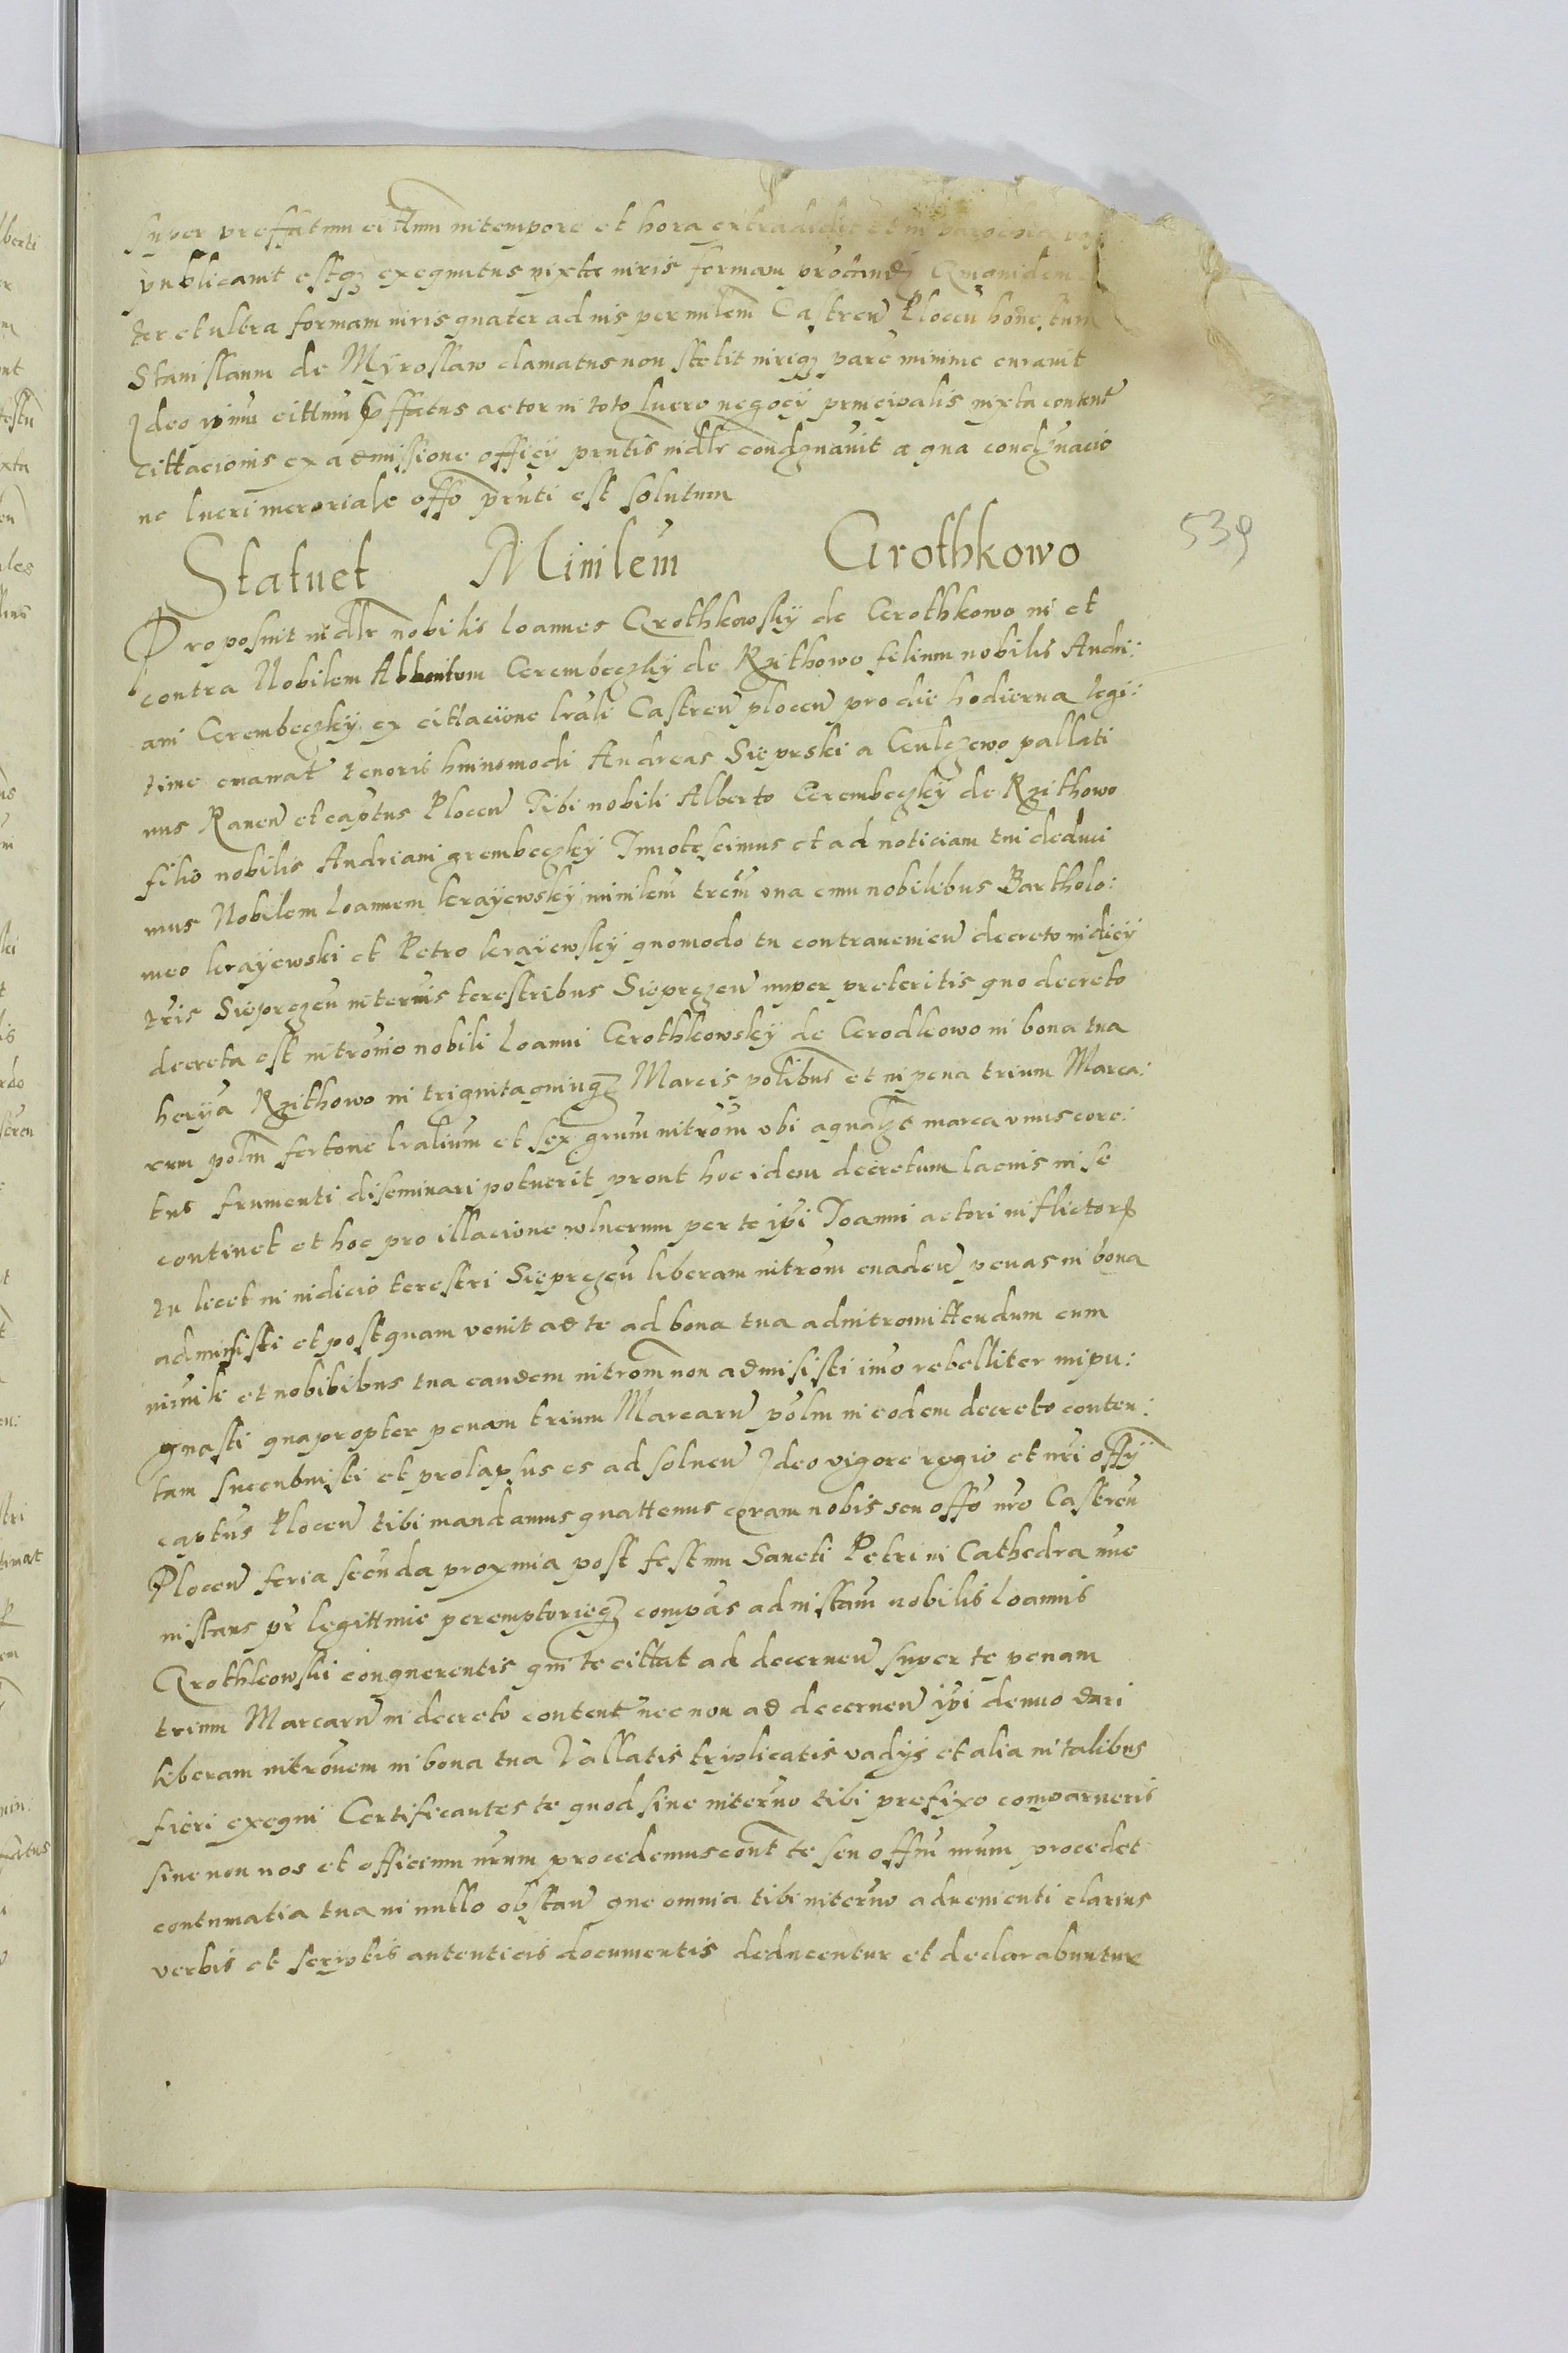 super preffatum cittatum in tempore et hora extradidit et in parochia
publicavit estqz exequutus iuxta iuris formam procanendj Quiquidem
ter et ultra formam iuris quater ad ius per milem Castren Plocen honestum
Stanislaum de Myroslaw clamatus non stetit iuriqz pare minime curavit
Ideo ipsum cittum pffatus actor in toto lucro negocÿ principalis iuxta content
cittacionis ex admissione officÿ pntis iudlr condgnavit a qua condgnacio
ne lucri memoriale offo pnti est solutum
Statuet Minilem Grothkowo
539
Proposuit iudlr nobilis Ioannes Grothkowskÿ de Grothkowo in et
contra Nobilem Albertum Gerembeczkÿ de Rzithowo filium nobilis Andri:
ani Gerembeczkÿ ex cittacione lrali Castren plocen pro die hodierna legi:
time emanat tenoris huiusmodi Andreas Sieprski a Gulczewo pallati
nus Raven et captus Plocen Tibi nobili Alberto Gerembeczkÿ de Rzithowo
filio nobilis Andriani grembeczkÿ Innotescimus et ad noticiam tui deduci
mus Nobilem Ioannem krajewskÿ minilem trem una cum nobilibus Bartholo:
meo krajewski et Petro krajewskÿ quomodo tu contravenien decreto iudicÿ
tris Sieprczen in termis terestribus Sieprczen nuper preteritis quo decreto
decreta est intromio nobili Ioanni Grothkowskÿ de Grodkowo in bona tua
herÿa Rzithowo in trigintaquinqz Marcis polibus et in pena trium Marca:
rum polm fertone lralium et sex grum introm ubi aqualzt marca unus core:
tus frumenti diseminari potuerit prout hoc idem decretum lacius in se
continet et hoc pro illacione wlnerum per te ipi Ioanni actori inflictorp
tu licet in iudicio terestri Sieprczen liberam introm evaden penas in bona
admisisti et postquam venit ad te ad bona tua ad intromittendum cum
minili et nobibibus tua eandem introm non admisisti imo rebelliter inpu:
gnasti quapropter penam trium Marcarum polm in eodem decreto conten:
tam succubuisti et prolapsus es ad solven Ideo vigore regio et nri offÿ
captus Plocen tibi mandamus quattenus coram nobis seu offo nro Castren
Plocen feria secunda proxima post festum Sancti Petri in Cathedra nuc
instans pr legittime peremptorieqz compas ad instam nobilis Ioannis
Grothkowski conquerentis qui te cittat ad decernen super te penam
trium Marcarum in decreto content nec non ad decernen ipi denuo dari
liberam intromem in bona tua Vallatis triplicatis vadÿs et alia in talibus
fieri exegni Certificantes te quod sive in termno tibi prefixo comparueris
sive non nos et officium nrum procedemus cont te seu offm nrum procedet
contumatia tua in nullo obstan que omnia tibi in termno advenienti clarius
verbis et scriptis autenticis documentis deducentur et declarabuntur